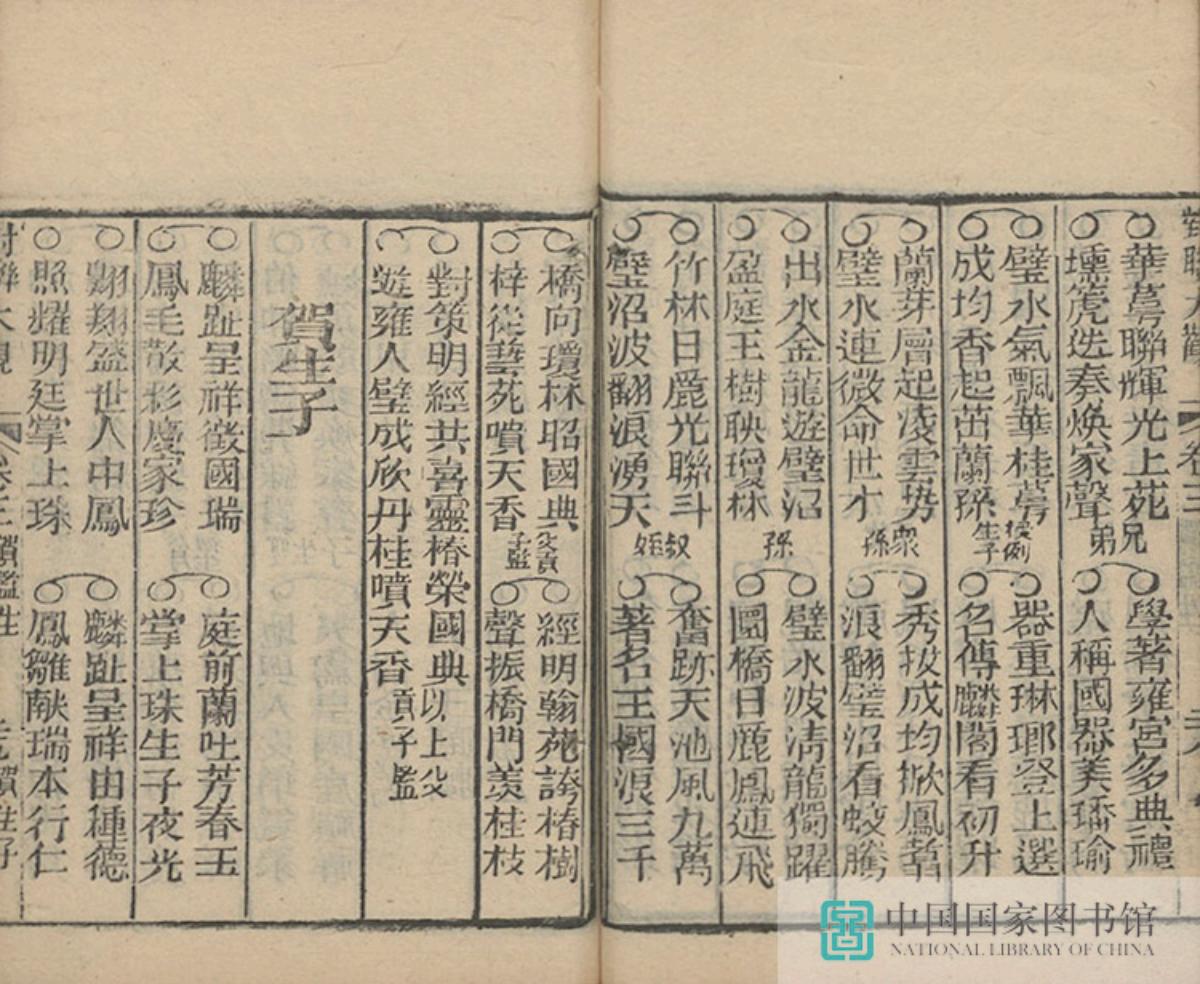 對聯大觀 卷三
華萼聯輝光上苑
壎篪迭奏煥家聲
兄弟
學著雍宮多典禮
人稱國器美璠瑜
璧水氣飄華桂萼
成均香起茁蘭孫
援例生子
器重琳瑯登上選
名傳麟閣看初升
蘭芽層起凌雲勢
璧水連微命世才
眾孫
秀拔成均掀鳳翥
浪翻璧沼看蛟騰
出水金龍遊璧沼
盈庭玉樹映瓊林
孫
璧水波清龍獨躍
圜橋日麗鳳連飛
竹林日麗光聯斗
璧沼波翻浪湧天
叔姪
奮跡天池風九萬
著名王國浪三千
橋向瓊林昭國典
梓從藝苑噴天香
父貢子監
經明翰苑誇椿樹
聲振橋門羨桂枝
對策明經共喜靈椿榮國典
遊雍人璧成欣丹桂噴天香
以上父貢子監
賀生子
麟趾呈祥徵國瑞
鳳毛散彩慶家珍
庭前蘭吐芳春玉
掌上珠生子夜光
翺翔盛世人中鳳
照耀明廷掌上珠
麟趾呈祥由種德
鳳雛獻瑞本行仁
對聯大觀 卷三
中国国家图书馆
NATIONAL LIBRARY OF CHINA